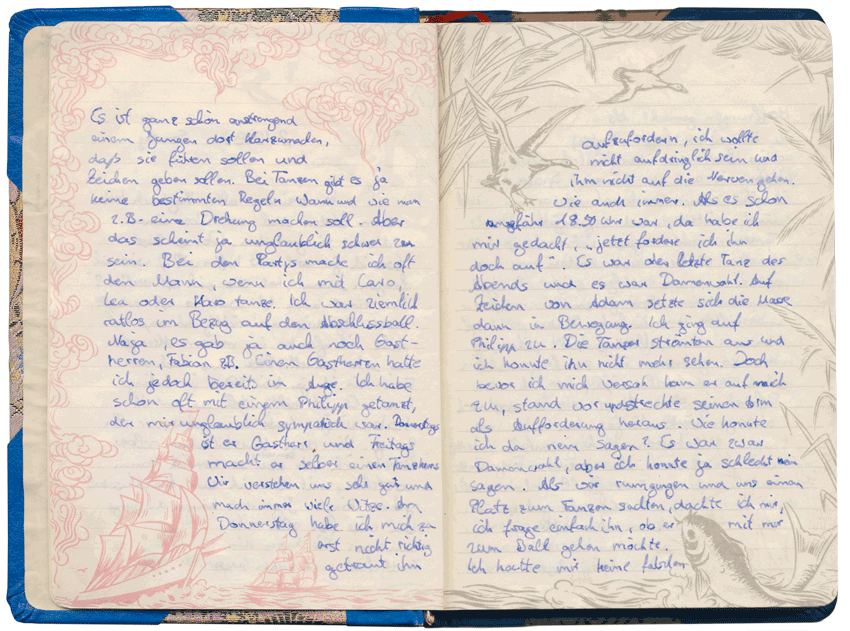 Es ist ganz schön anstrengend
einem Jungen dort klarzumachen,
daß sie führen sollen und
Zeichen geben sollen. Bei Tanzen gibt es ja
keine bestimmten Regeln wann und wie man
z.B. eine Drehung machen soll. Aber
das scheint ja unglaublich schwer zu
sein. Bei den Partys mache ich oft
den Mann, wenn ich mit Caro,
Lea oder tanze. Ich war ziemlich
ratlos im Bezug auf den Abschlussball.
Naja, es gab ja auch noch Gast-
herren, Fabian zB. Einen Gastherren hatte
ich jedoch bereits im Auge. Ich habe
schon oft mit einem Philipp getanzt,
der mir unglaublich sympatisch war. Donnerstags
ist er Gastherr, und Freitags
macht er selber einen Tanzkurs
Wir verstehen uns sehr gut und
machen immer viele Witze. Am
Donnerstag habe ich mich zu
erst nicht richtig
getraut ihn
aufzufordern, ich wollte
nicht aufdringlich sein und
ihm nicht auf die Nerven gehen.
Wie auch immer. Als es schon
ungefähr 18.50 Uhr war, da habe ich
mir gedacht, „jetzt fordere ich ihn
doch auf“. Es war der letzte Tanz des
Abends und es war Damenwahl. Auf
Zeichen von Adam setzte sich die Masse
dann in Bewegung. Ich ging auf
Philipp zu. Die Tänzer strömten aus und
ich konnte ihn nicht mehr sehen. Doch
bevor ich mich versah kam er auf mich
zu, stand vor und streckte seinen Arm
als Aufforderung heraus. Wie konnte
ich da nein sagen? Es war zwar
Damenwahl, aber ich konnte ja schlecht nein
sagen. Als wir rumgingen und uns einen
Platz zum Tanzen suchten, dachte ich mir,
ich frage einfach ihn, ob er mit mir
zum Ball gehen möchte.
Ich hatte mir keine